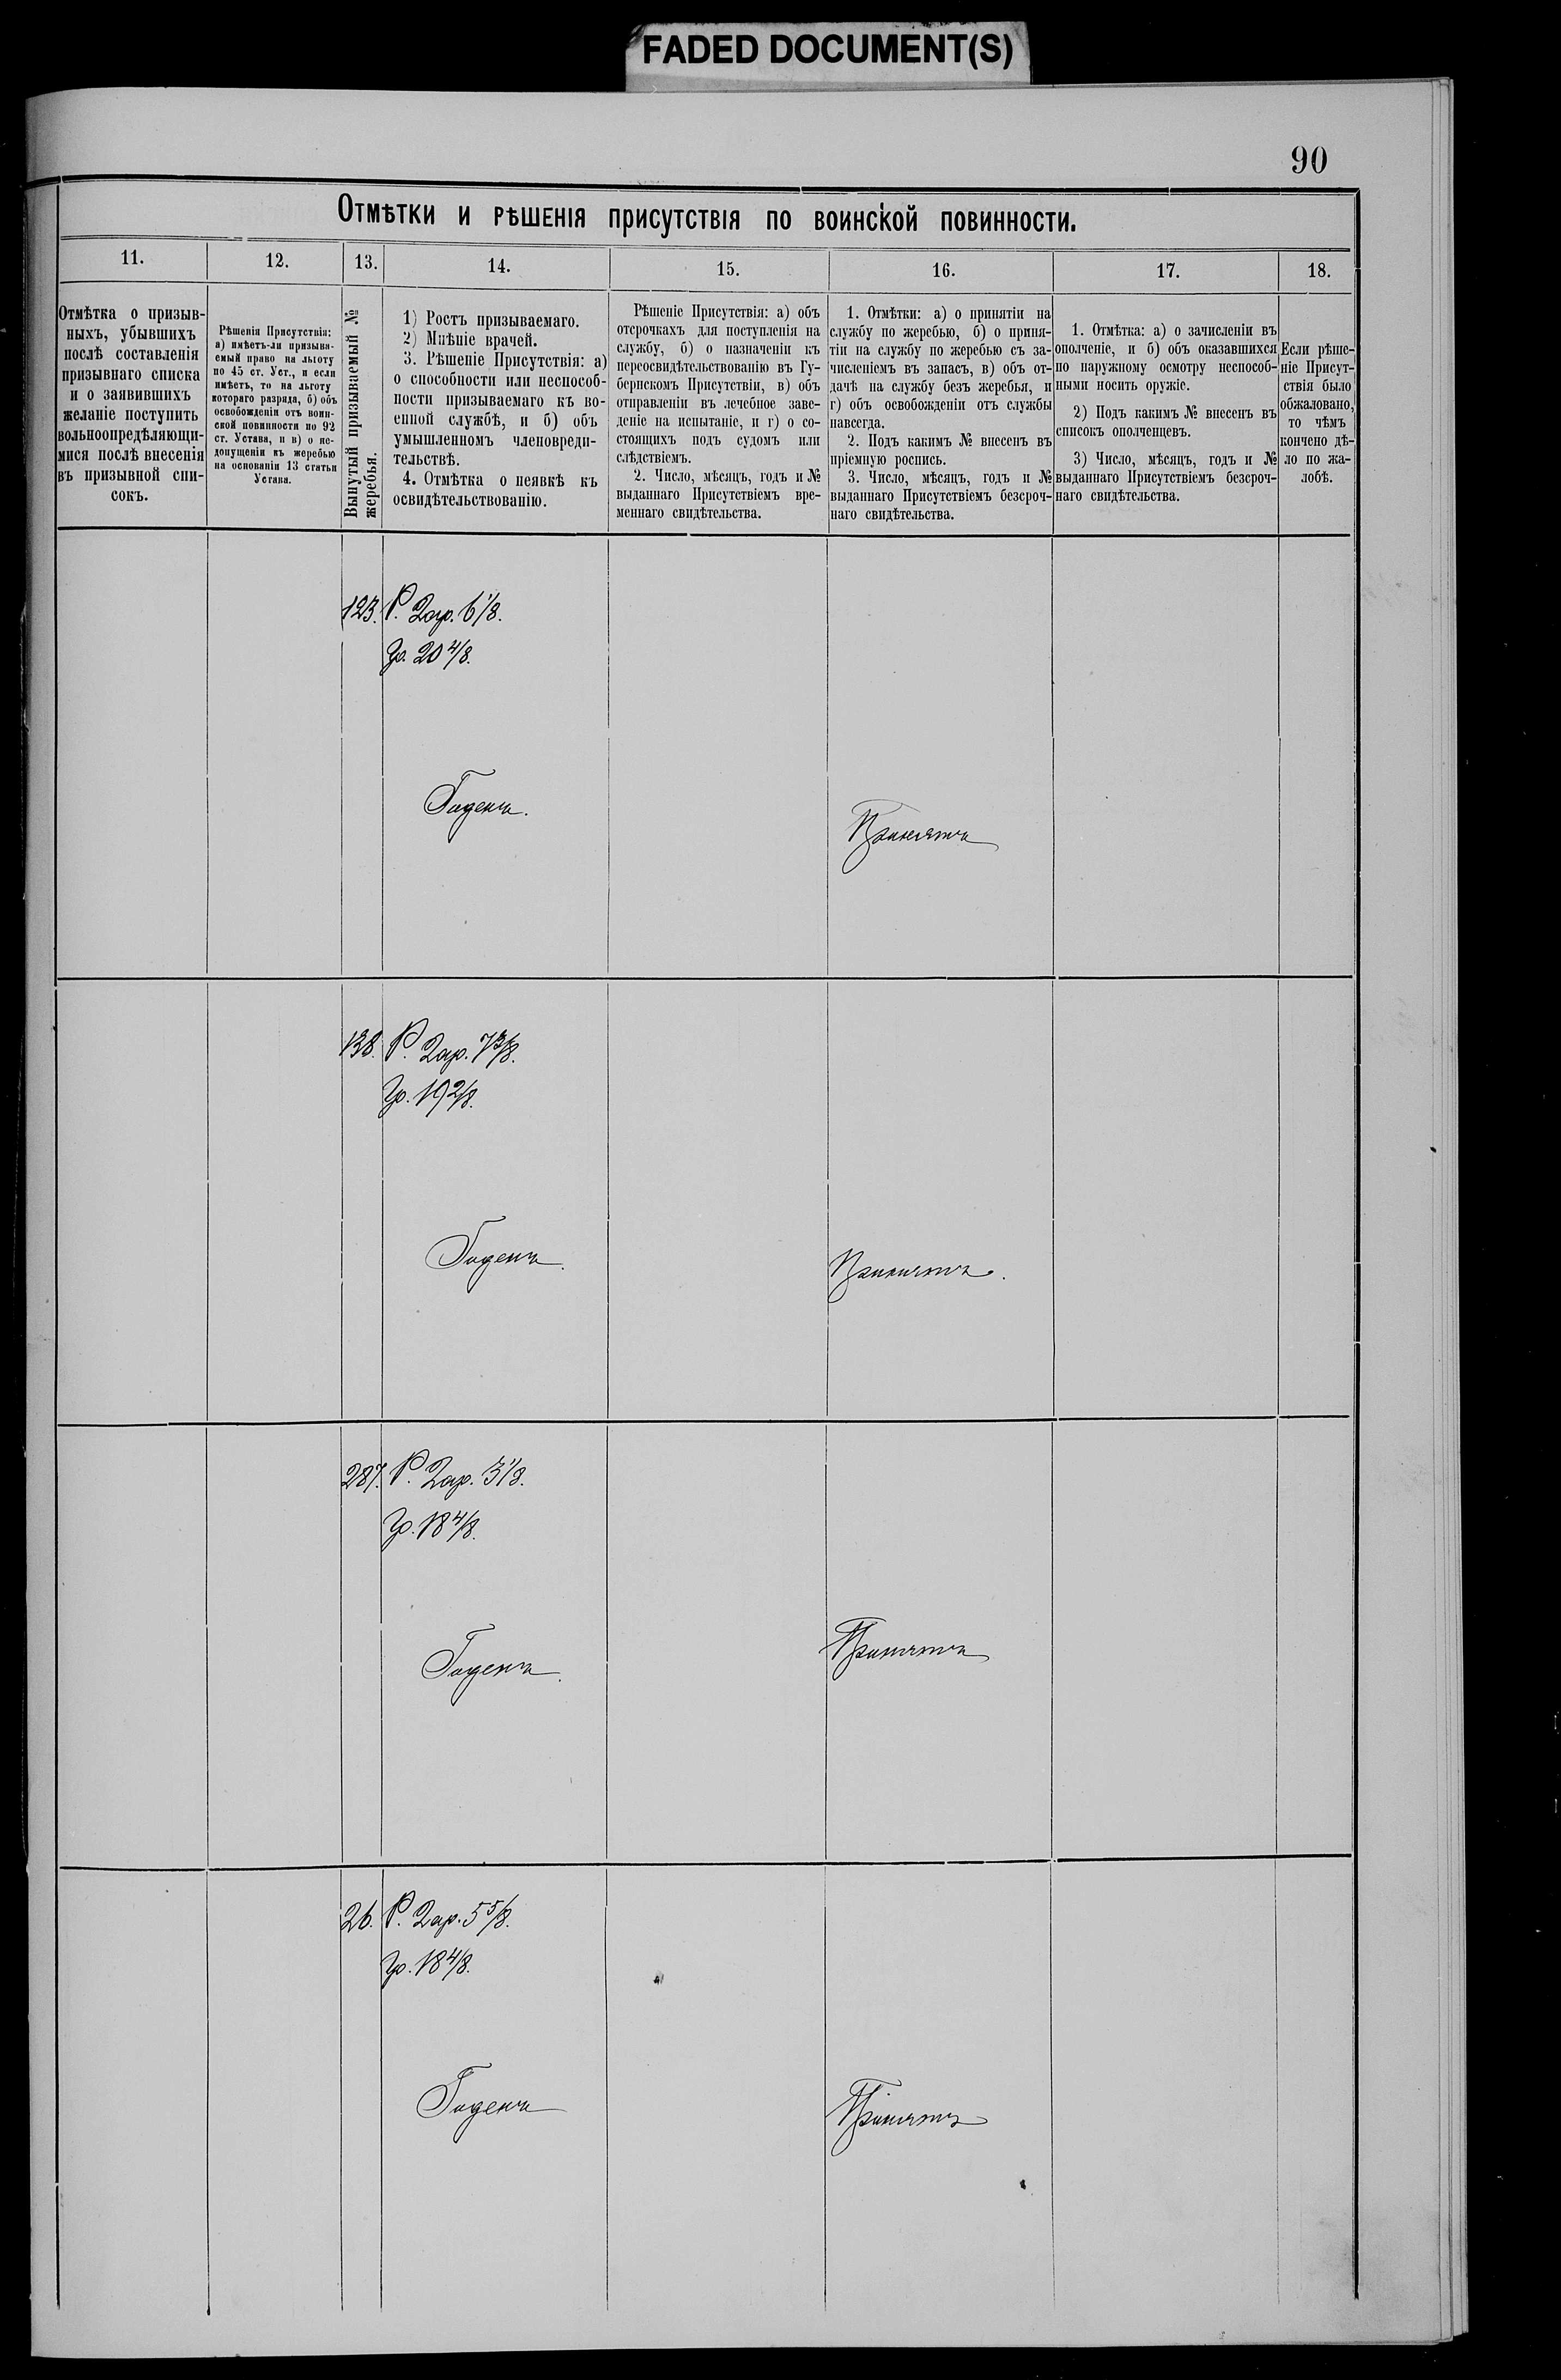 FADED DOCUMENT(S)
90
Отмѣтки и рѣшенія присутствія по воинской повинности.
11.
12.
13.
14.
15.
16.
17.
18.
Отмѣтка о призыв-
ныхъ, убывшихъ
послѣ составленія
призывнаго списка
и о заявившихъ
желаніе поступить
вольноопредѣляющи-
мися послѣ внесенія
въ призывной спи-
сокъ.
Рѣшенія Присутствія:
а) имѣетъ-ли призыва-
емый право на льготу
по 45 ст. Уст., и если
имѣетъ, то на льготу
котораго разряда, б) объ
освобожденіи отъ воин-
ской повинности по 92
ст. Устава, и в) о не-
допущеніи къ жеребью
на основаніи 13 статьи
Устава.
Вынутый призываемый №
жеребья.
1) Ростъ призываемаго.
2) Мнѣніе врачей.
3. Рѣшеніе Присутствія: а)
о способности или неспособ-
ности призываемаго къ во-
енной службѣ, и б) объ
умышленномъ членовреди-
тельствѣ.
4. Отмѣтка о неявкѣ къ
освидѣтельствованію.
Рѣшеніе Присутствія: а) объ
отсрочкахъ для поступленія на
службу, б) о назначеніи къ
переосвидѣтельствованію въ Гу-
бернскомъ Присутствіи, в) объ
отправленіи въ лечебное заве-
деніе на испытаніе, и г) о со-
стоящихъ подъ судомъ или
слѣдствіемъ.
2. Число, мѣсяцъ, годъ и №
выданнаго Присутствіемъ вре-
меннаго свидѣтельства.
1. Отмѣтки: а) о принятіи на
службу по жеребью, б) о приня-
тіи на службу по жеребью съ за-
численіемъ въ запасъ, в) объ от-
дачѣ на службу безъ жеребья, и
г) объ освобожденіи отъ службы
навсегда.
2. Подъ какимъ № внесенъ въ
пріемную роспись.
3. Число, мѣсяцъ, годъ и №
выданнаго Присутствіемъ безсроч-
наго свидѣтельства.
1. Отмѣтка: а) о зачисленіи въ
ополченіе, и б) объ оказавшихся
по наружному осмотру неспособ-
ными носить оружіе.
2) Подъ какимъ № внесенъ въ
списокъ ополченцевъ.
3) Число, мѣсяцъ, годъ и №
выданнаго Присутствіемъ безсроч-
наго свидѣтельства.
Если рѣше-
ніе Присут-
ствія было
обжаловано,
то чѣмъ
кончено дѣ-
ло по жа-
лобѣ.
123. Р. 2 ар. 6 1/8.
Гр. 20 4/8.
Годенъ.
Принятъ
138. Р. 2 ар. 7 3/8.
Гр. 19 2/8.
Годенъ.
Принятъ.
287. Р. 2 ар. 3 1/8.
Гр. 18 4/8.
Годенъ.
Принятъ
26. Р. 2 ар. 5 5/8.
Гр. 18 4/8.
Годенъ
Принятъ